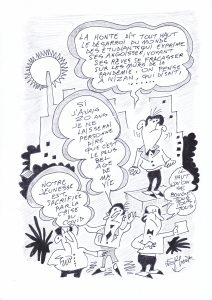 LA HONTE DIT TOUT HAUT
LE DÉSARROI DU MONDE
DES ÉTUDIANTS QUI EXPRIME
SES ANGOISSES, VOYANT
SES RÊVES SE FRACASSER
SUR LES MURS DE LA
PANDÉMIE. ON PENSE
À NIZAN, QUI DISAIT, ....
SI
J'AVAIS
20
ANS
JE NE
LAISSERAI
PERSONNE
DIRE
QUE C'EST
LE PLUS
BEL
ÂGE
DE MA
VIE
NOTRE
JEUNESSE
SACRIFIÉE
PAR LA
CRISE
COVID
FAUT
QU'ON
BOUGE